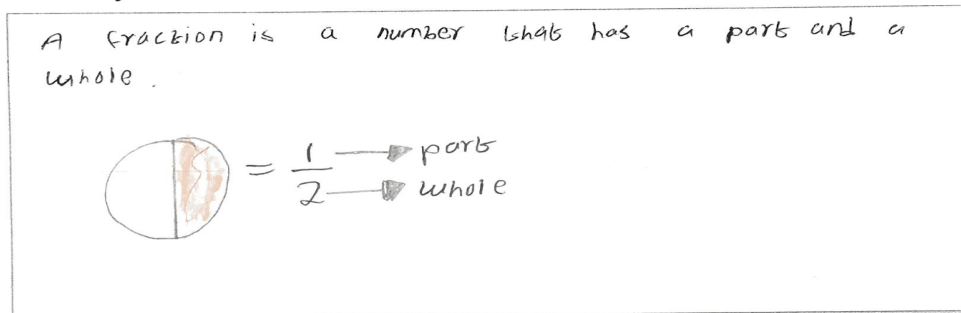 A fraction is a number that has a part and a
whole.
= 1/2 → part
→ whole